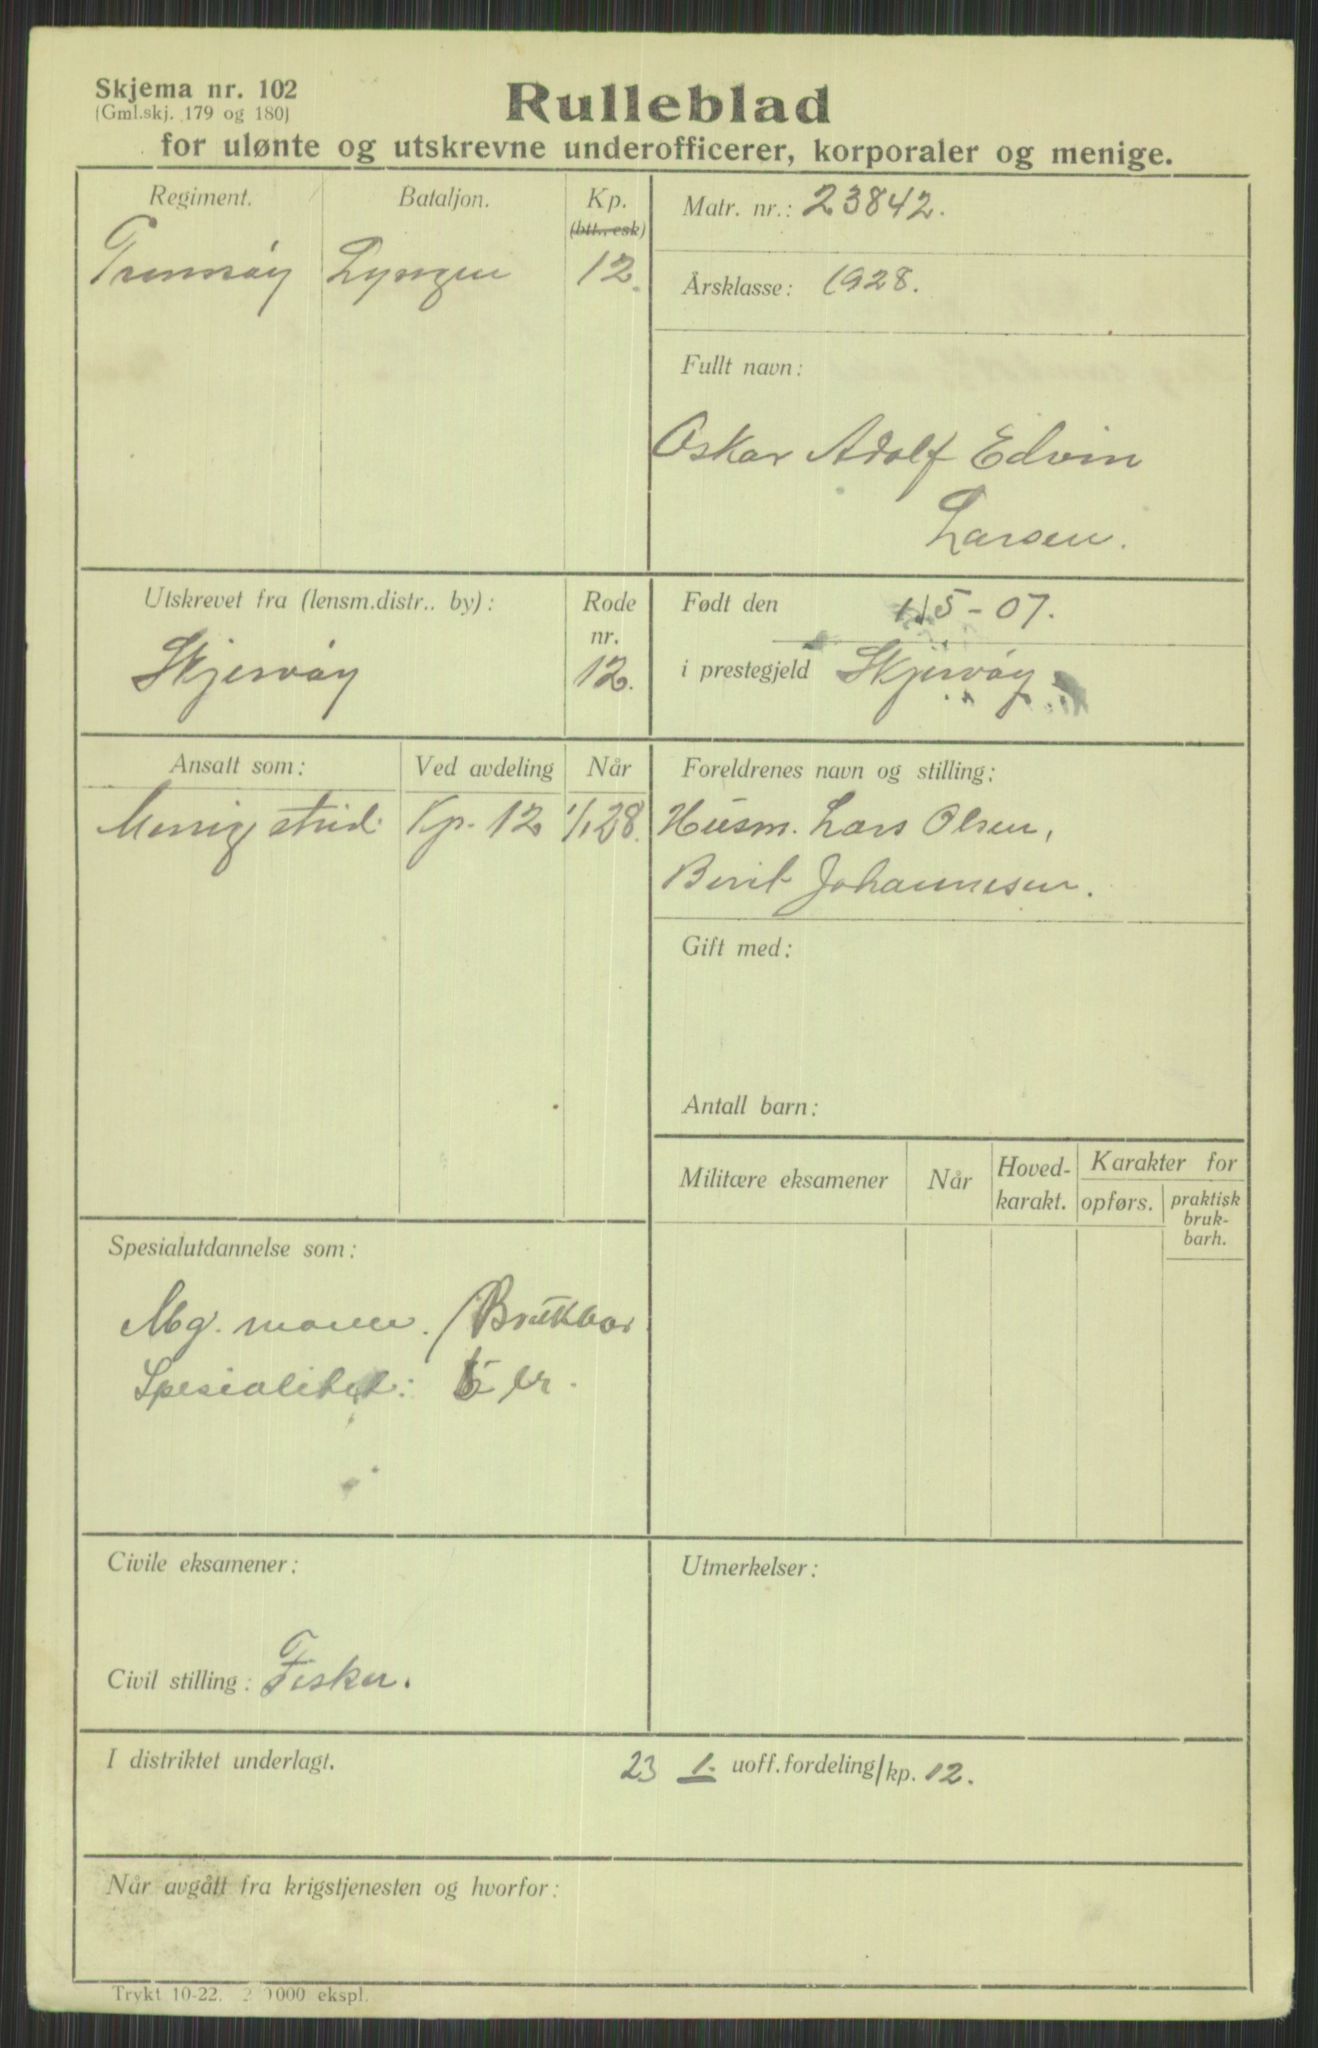 Skjema nr. 102
(Gml.skj. 179 og 180)
Rulleblad
for ulønte og utskrevne underofficerer, korporaler og menige.
Regiment. Bataljon. Kp.
(btt. esk)
Tromsøy Lyngen 12.
Matr. nr.: 23842.
Årsklasse: 1928.
Fullt navn:
Oskar Adolf Edvin
Larsen.
Utskrevet fra (lensm.distr.. by): Rode
nr.
Skjervøy 12.
Født den 1/5-07.
i prestegjeld Skjervøy
Ansatt som: Ved avdeling Når
Menig strid. Kp. 12 1/1 28.
Foreldrenes navn og stilling:
Husm. Lars Olsen,
Berit Johannesen.
Gift med:
Antall barn:
Militære eksamener Når Hoved-
karakt. Karakter for
opførs. praktisk
bruk-
barh.
Spesialutdannelse som:
Mg. mann. / Brukbar
Spesialitet:
Civile eksamener:
Civil stilling: Fisker.
Utmerkelser:
I distriktet underlagt. 23 1. uoff.fordeling/kp. 12.
Når avgått fra krigstjenesten og hvorfor:
Trykt 10-22. 2 000 ekspl.